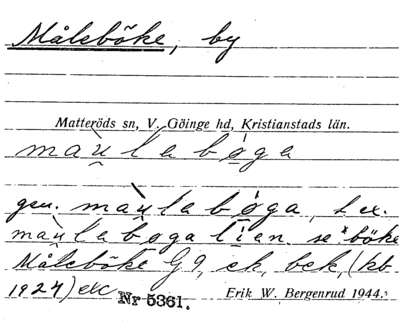 Måleböke, by
Matteröds sn, V. Göinge hd, Kristianstads län.
mau̯laboga
gen. mau̯laboga, t. ex.
mau̯laboga lien se böke
Måleböke G 9, ek, bek, (kb
1924) etc Nr 5361. Erik W. Bergenrud 1944.